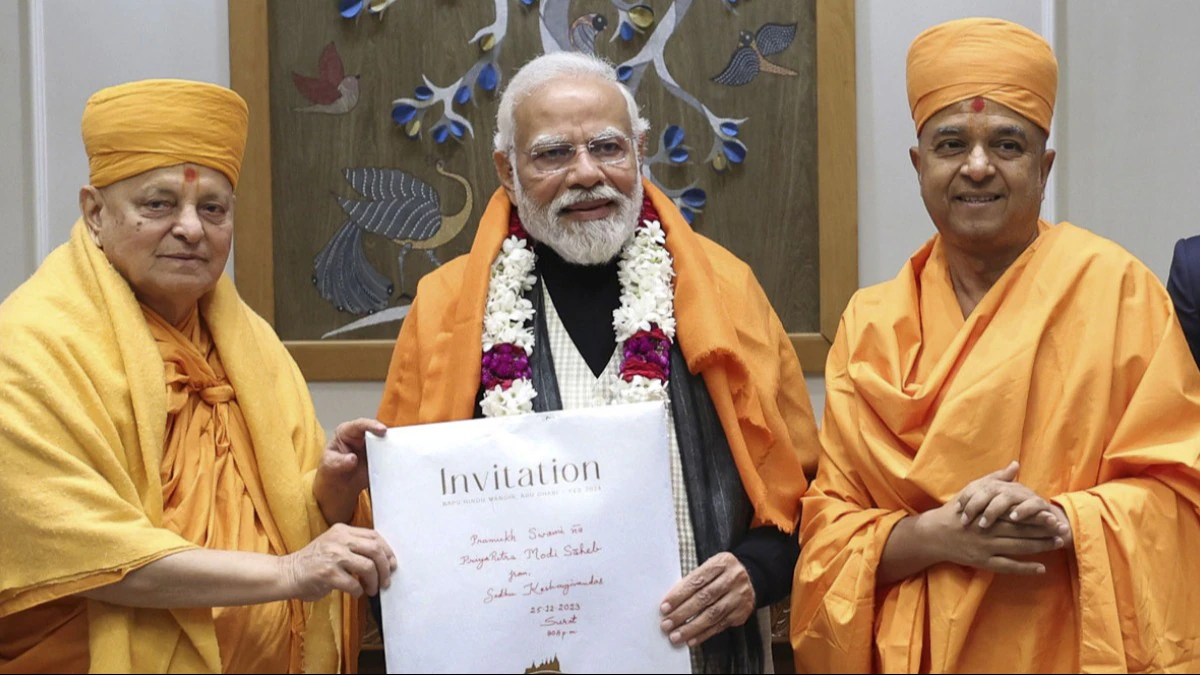 Invitation
BAPS HINDU MANDIR, ABU DHABI - FEB 2024
Pramukh Swami
PriyaPutra Modi Saheb
from,
Sadhu Keshavjivandas
25-12-2023
Surat